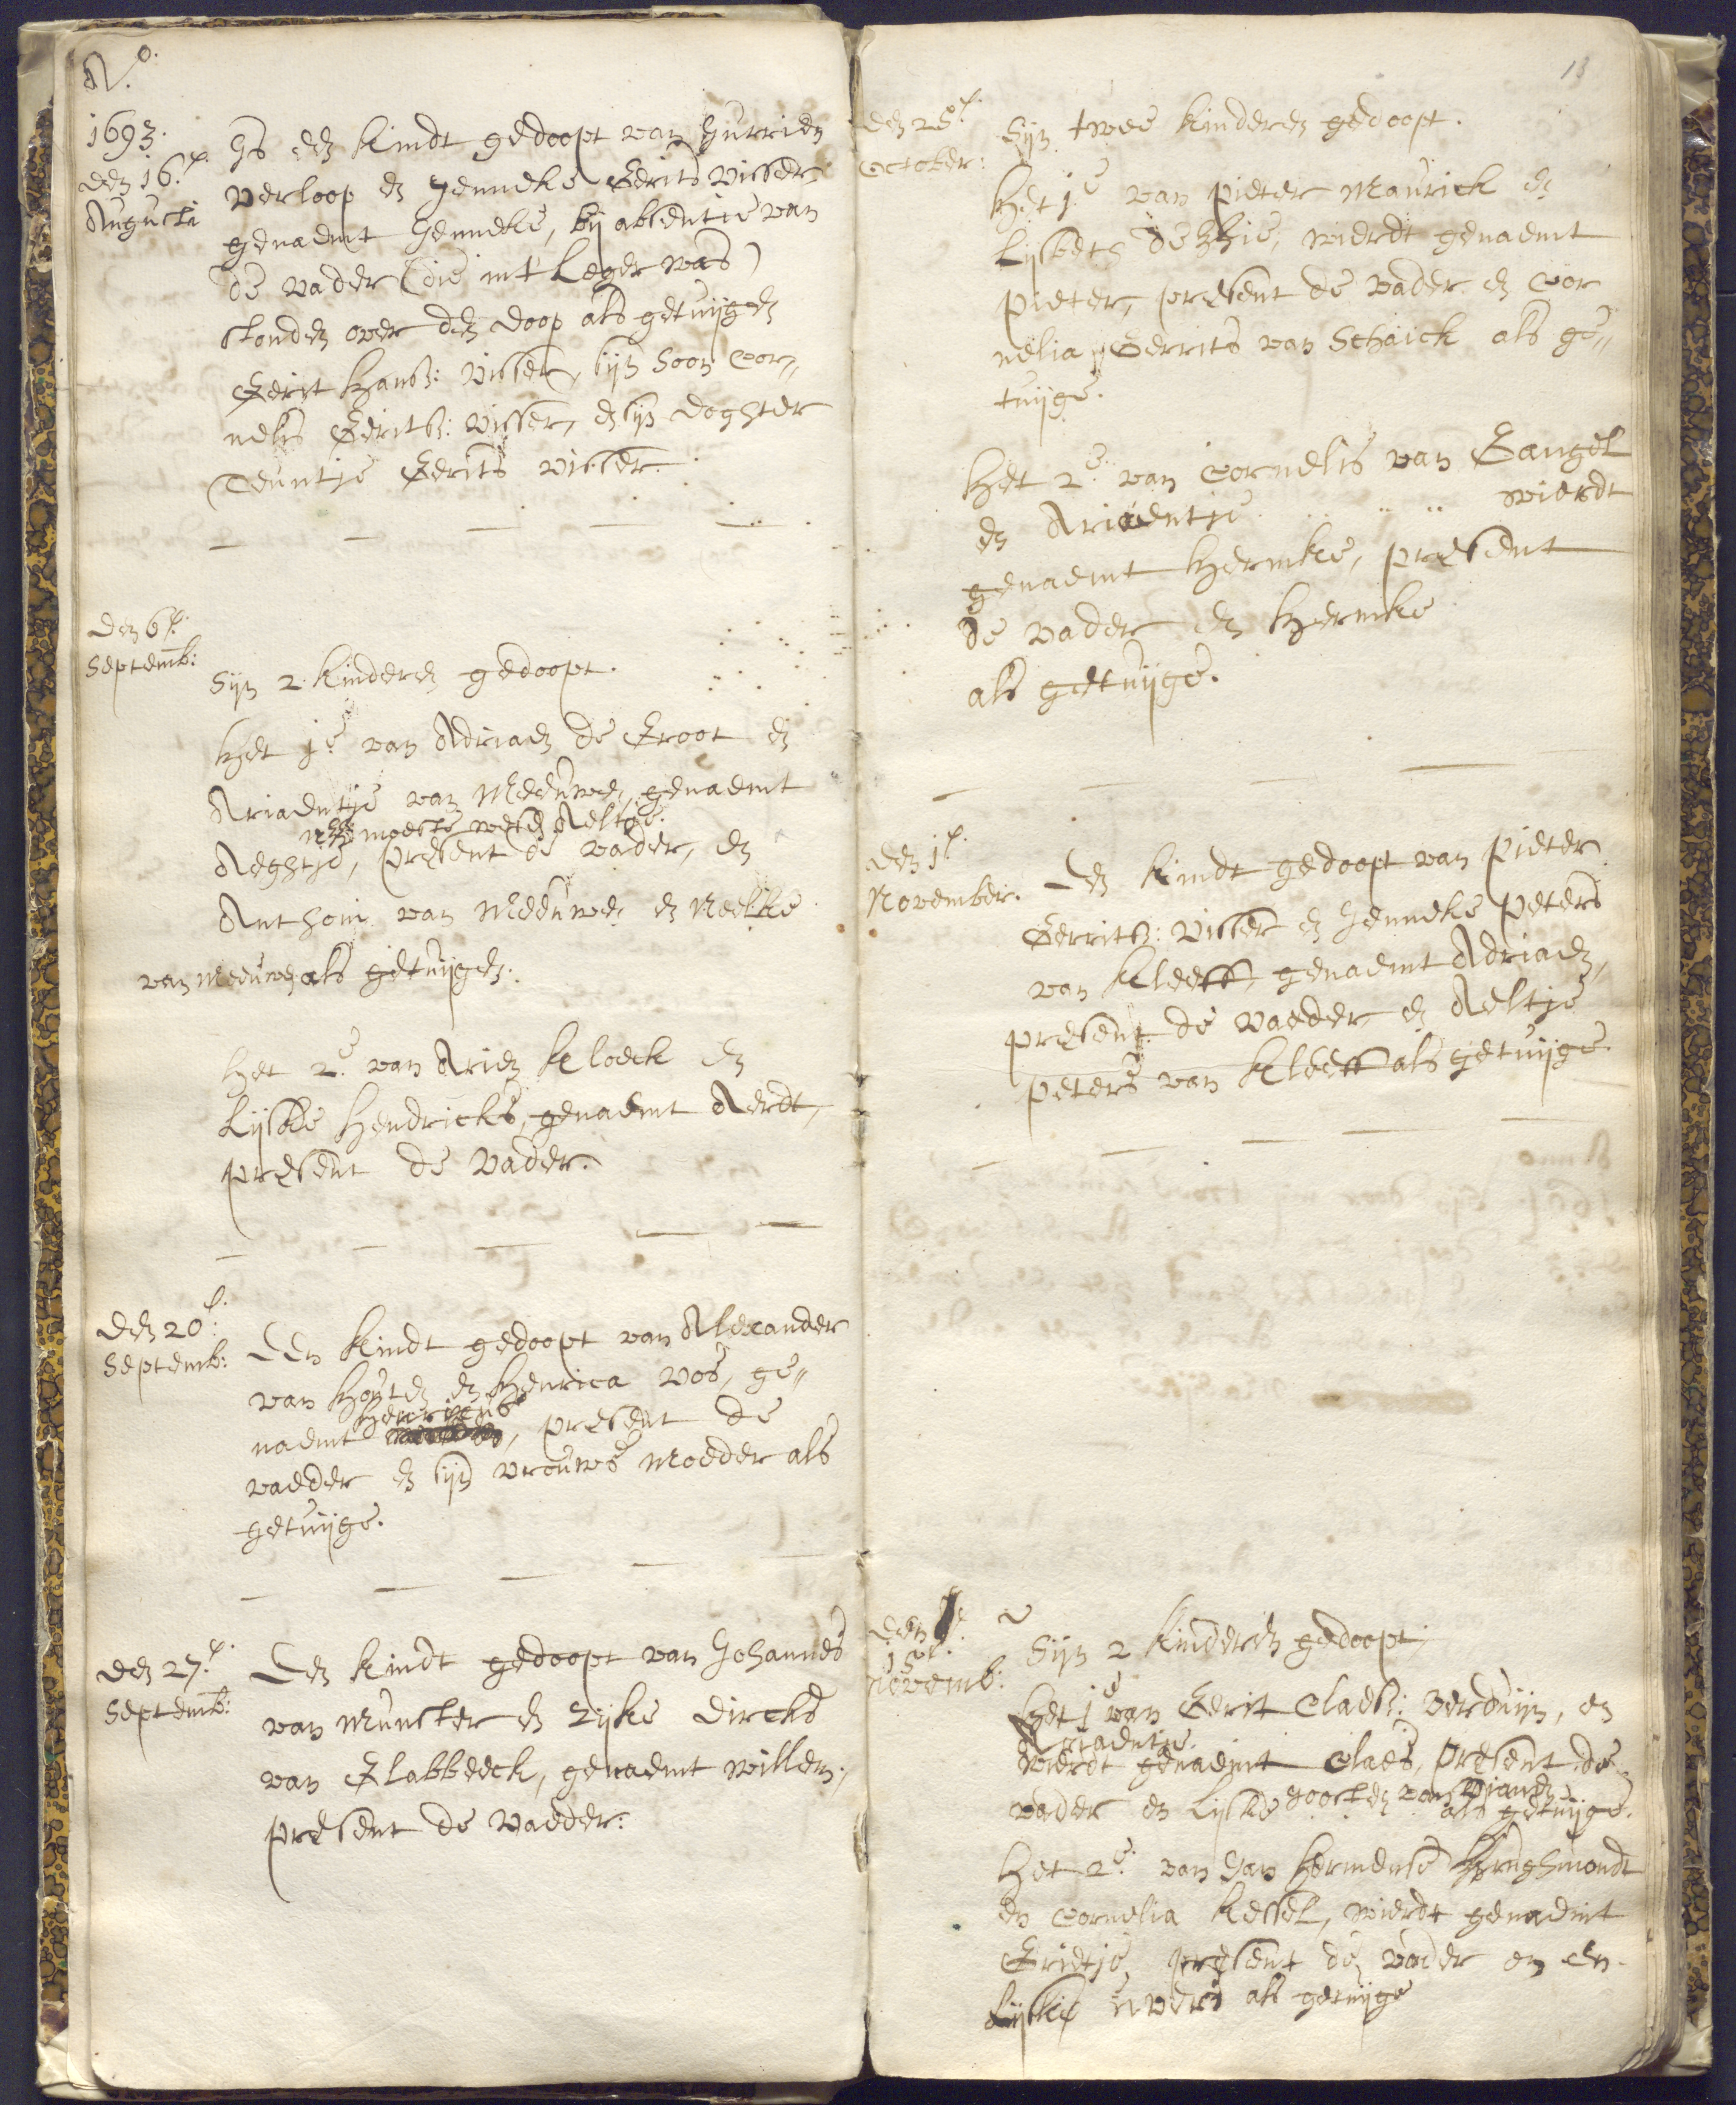 Ao.
1693.
den 16.e
Augusti
Is een kindt gedoopt van Jurrien
Verloop en Jenneke Gerits Visser
genaemt Jenneke, bij absentie van
de vader (die in 't Leger was)
stonden over den doop als getuijgen
Gerit Hansz: Visser, sijn soon Cor„
nelis Geritsz: Visser, en sijn doghter
Teuntje Gerits Visser.
den 6e.
Septemb:
Sijn 2 kinderen gedoopt.
Het 1e van Adriaen de Groot en
Ariaentje van Meeuwen, genaemt
moeste wesen Aeltge.
Aeghtje, present de vader, en
Anthoni van Meeuwen en Neeltke
van Meeuwen als getuijgen.
Het 2e. van Arien Kloeck en
Lijske Hendricks, genaemt Aerdt,
present de vader.
den 20e.
Septemb:
Een kindt gedoopt van Alexander
van Houten en Henrica Vos, ge„
Henricus
naemt, present de
vaeder en sijn vrouws moeder als
getuijge.
den 27.e
Septemb:
Een kindt gedoopt van Johannes
van Munster en Zijke Dircks
van Slabbeeck, genaemt Willem,
present de vaeder.
13
den 25e.
October:
Sijn twee kinderen gedoopt.
Het 1e van Pieter Maurick en
Lijsbeth, wierdt genaemt
Pieter, present de vader en Cor
nelia Gerrits van Schaick als ge„
tuijge.
Het 2e. van Cornelis van Gangel
en Ariaentje .. .. .. wierdt
genaemt Hermke, present
de vader en Hermke
als getuijge.
den 1e.
November.
Een kindt gedoopt van Pieter
Gerritsz: Visser en Jenneke Peters
van Kleeff, genaemt Adriaen,
present de vaeder en Aeltje
Peters van Kleeff als getuijge.
den
15e.
Novemb:
Sijn 2 kinderen gedoopt,
Het 1e van Gerit Claesz: Verduijn, en
Ariaentje.
wierdt genaemt Claes, present de
vader en Lijske Joosten van Vianen
als getuijge.
Het 2e. van Jan Hermense
en Cornelia Kessel, wierdt genaemt
Grietje, present de vader en en
Lijske als getuijge